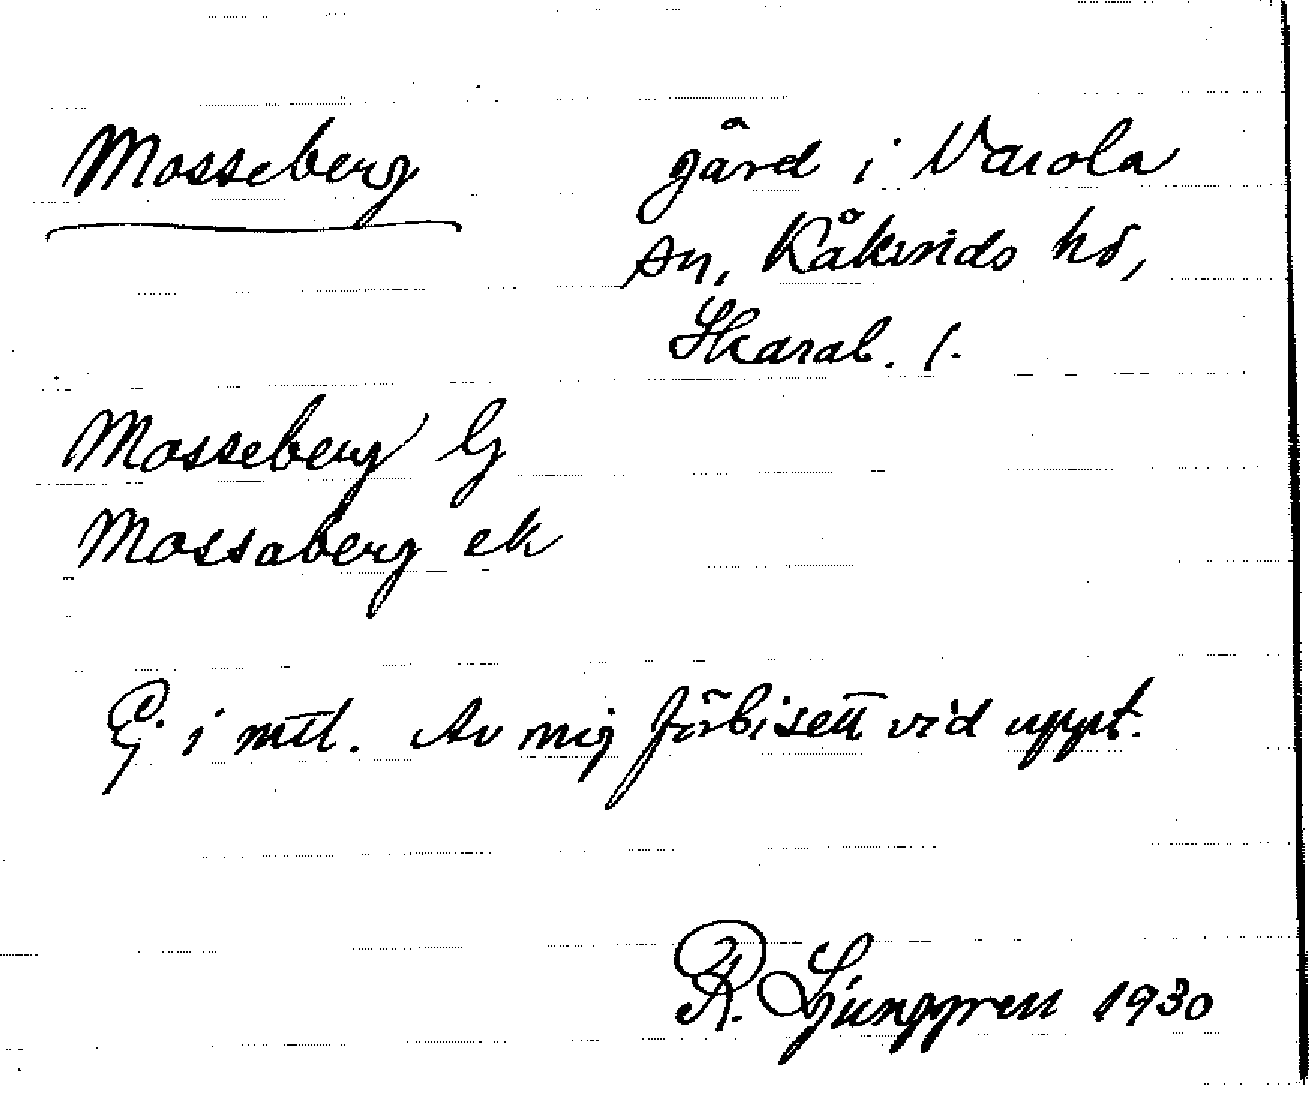 Mosseberg
gård i Varola
sn, Kåkinds hd,
Skarab. l.
Mosseberg G
Mossaberg ek
G. i mtl. Av mig förbisett vid uppt.
R. Ljunggren 1930